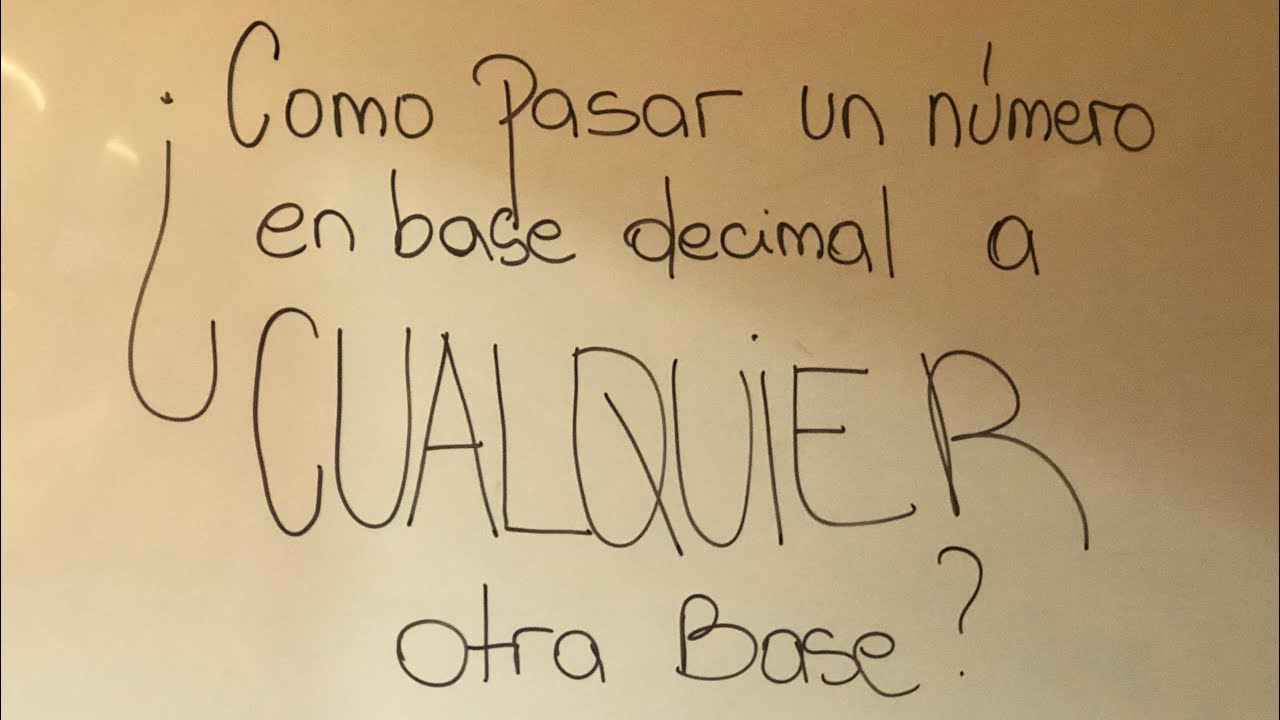 ¿Como Pasar un número
en base decimal a
CUALQUiER
otra Base?